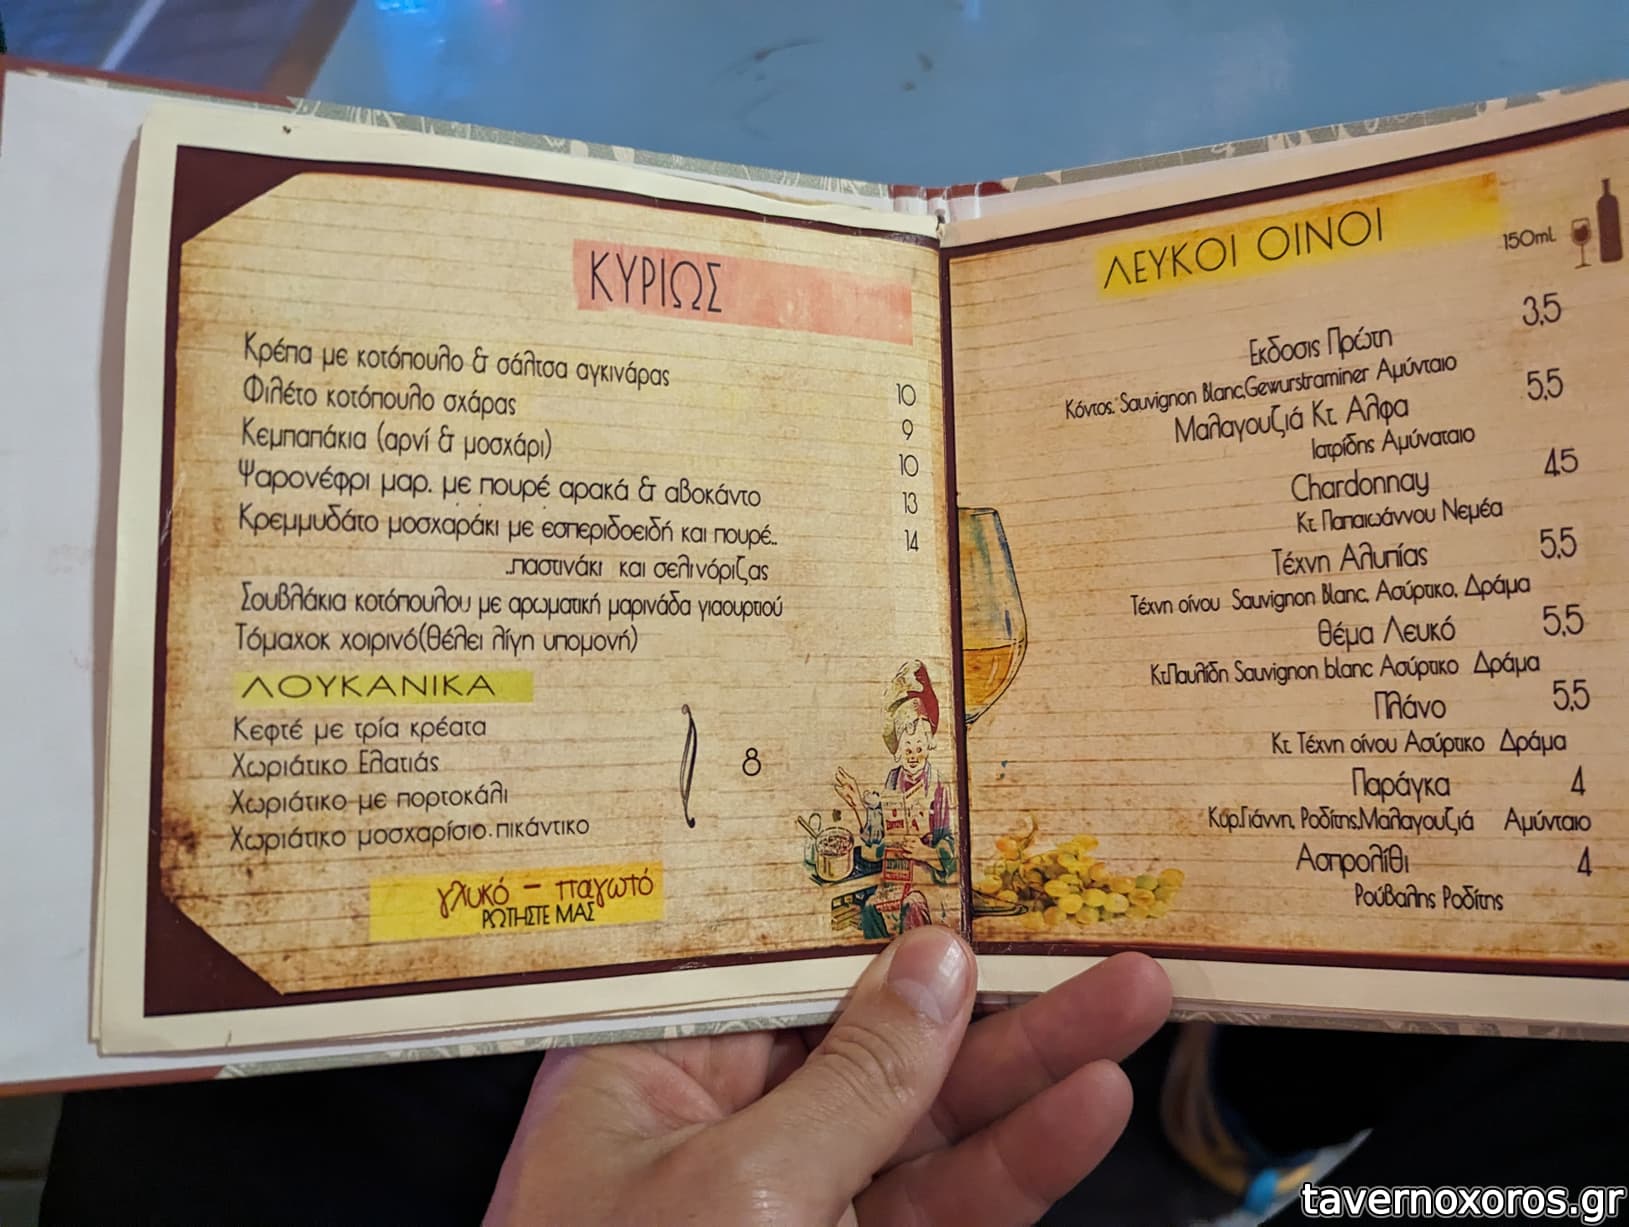 ΚΥΡΙΩΣ
Κρέπα με κοτόπουλο & σάλτσα αγκινάρας 10
Φιλέτο κοτόπουλο σχάρας 9
Κεμπαπάκια (αρνί & μοσχάρι) 10
Ψαρονέφρι μαρ. με πουρέ αρακά & αβοκάντο 13
Κρεμμυδάτο μοσχαράκι με έσπεριδοειδή και πουρέ.. 14
..παστινάκι και σελινόριζας
Σουβλάκια κοτόπουλου με αρωματική μαρινάδα γιαουρτιού
Τόμαχοκ χοιρινό(θέλει λίγη υπομονή)
ΛΟΥΚΑΝΙΚΑ
Κεφτέ με τρία κρέατα
Χωριάτικο Ελατιάς
Χωριάτικο με πορτοκάλι
Χωριάτικο μοσχαρίσιο.πικάντικο
8
γλυκό - παγωτό
ΡΩΤΗΣΤΕ ΜΑΣ
ΛΕΥΚΟΙ ΟΙΝΟΙ
150ml
Εκδοσις Πρώτη 3,5
Κόντος. Sauvignon Blanc,Gewurstraminer Αμύνταιο
Μαλαγουζιά Κτ. Αλφα 5,5
Ιατρίδης Αμύναταιο
Chardonnay 4,5
Κτ. Παπαιωάννου Νεμέα
Τέχνη Αλυπίας 5,5
Τέχνη οίνου Sauvignon Blanc, Ασύρτικο, Δράμα
Θέμα Λευκό 5,5
Κτ.Παυλίδη Sauvignon blanc Ασύρτικο Δράμα
Πλάνο 5,5
Κτ. Τέχνη οίνου Ασύρτικο Δράμα
Παράγκα 4
Κυρ.Γιάννη, Ροδίτης,Μαλαγουζιά Αμύνταιο
Ασπρολίθι 4
Ρούβαλης Ροδίτης
tavernoxoros.gr